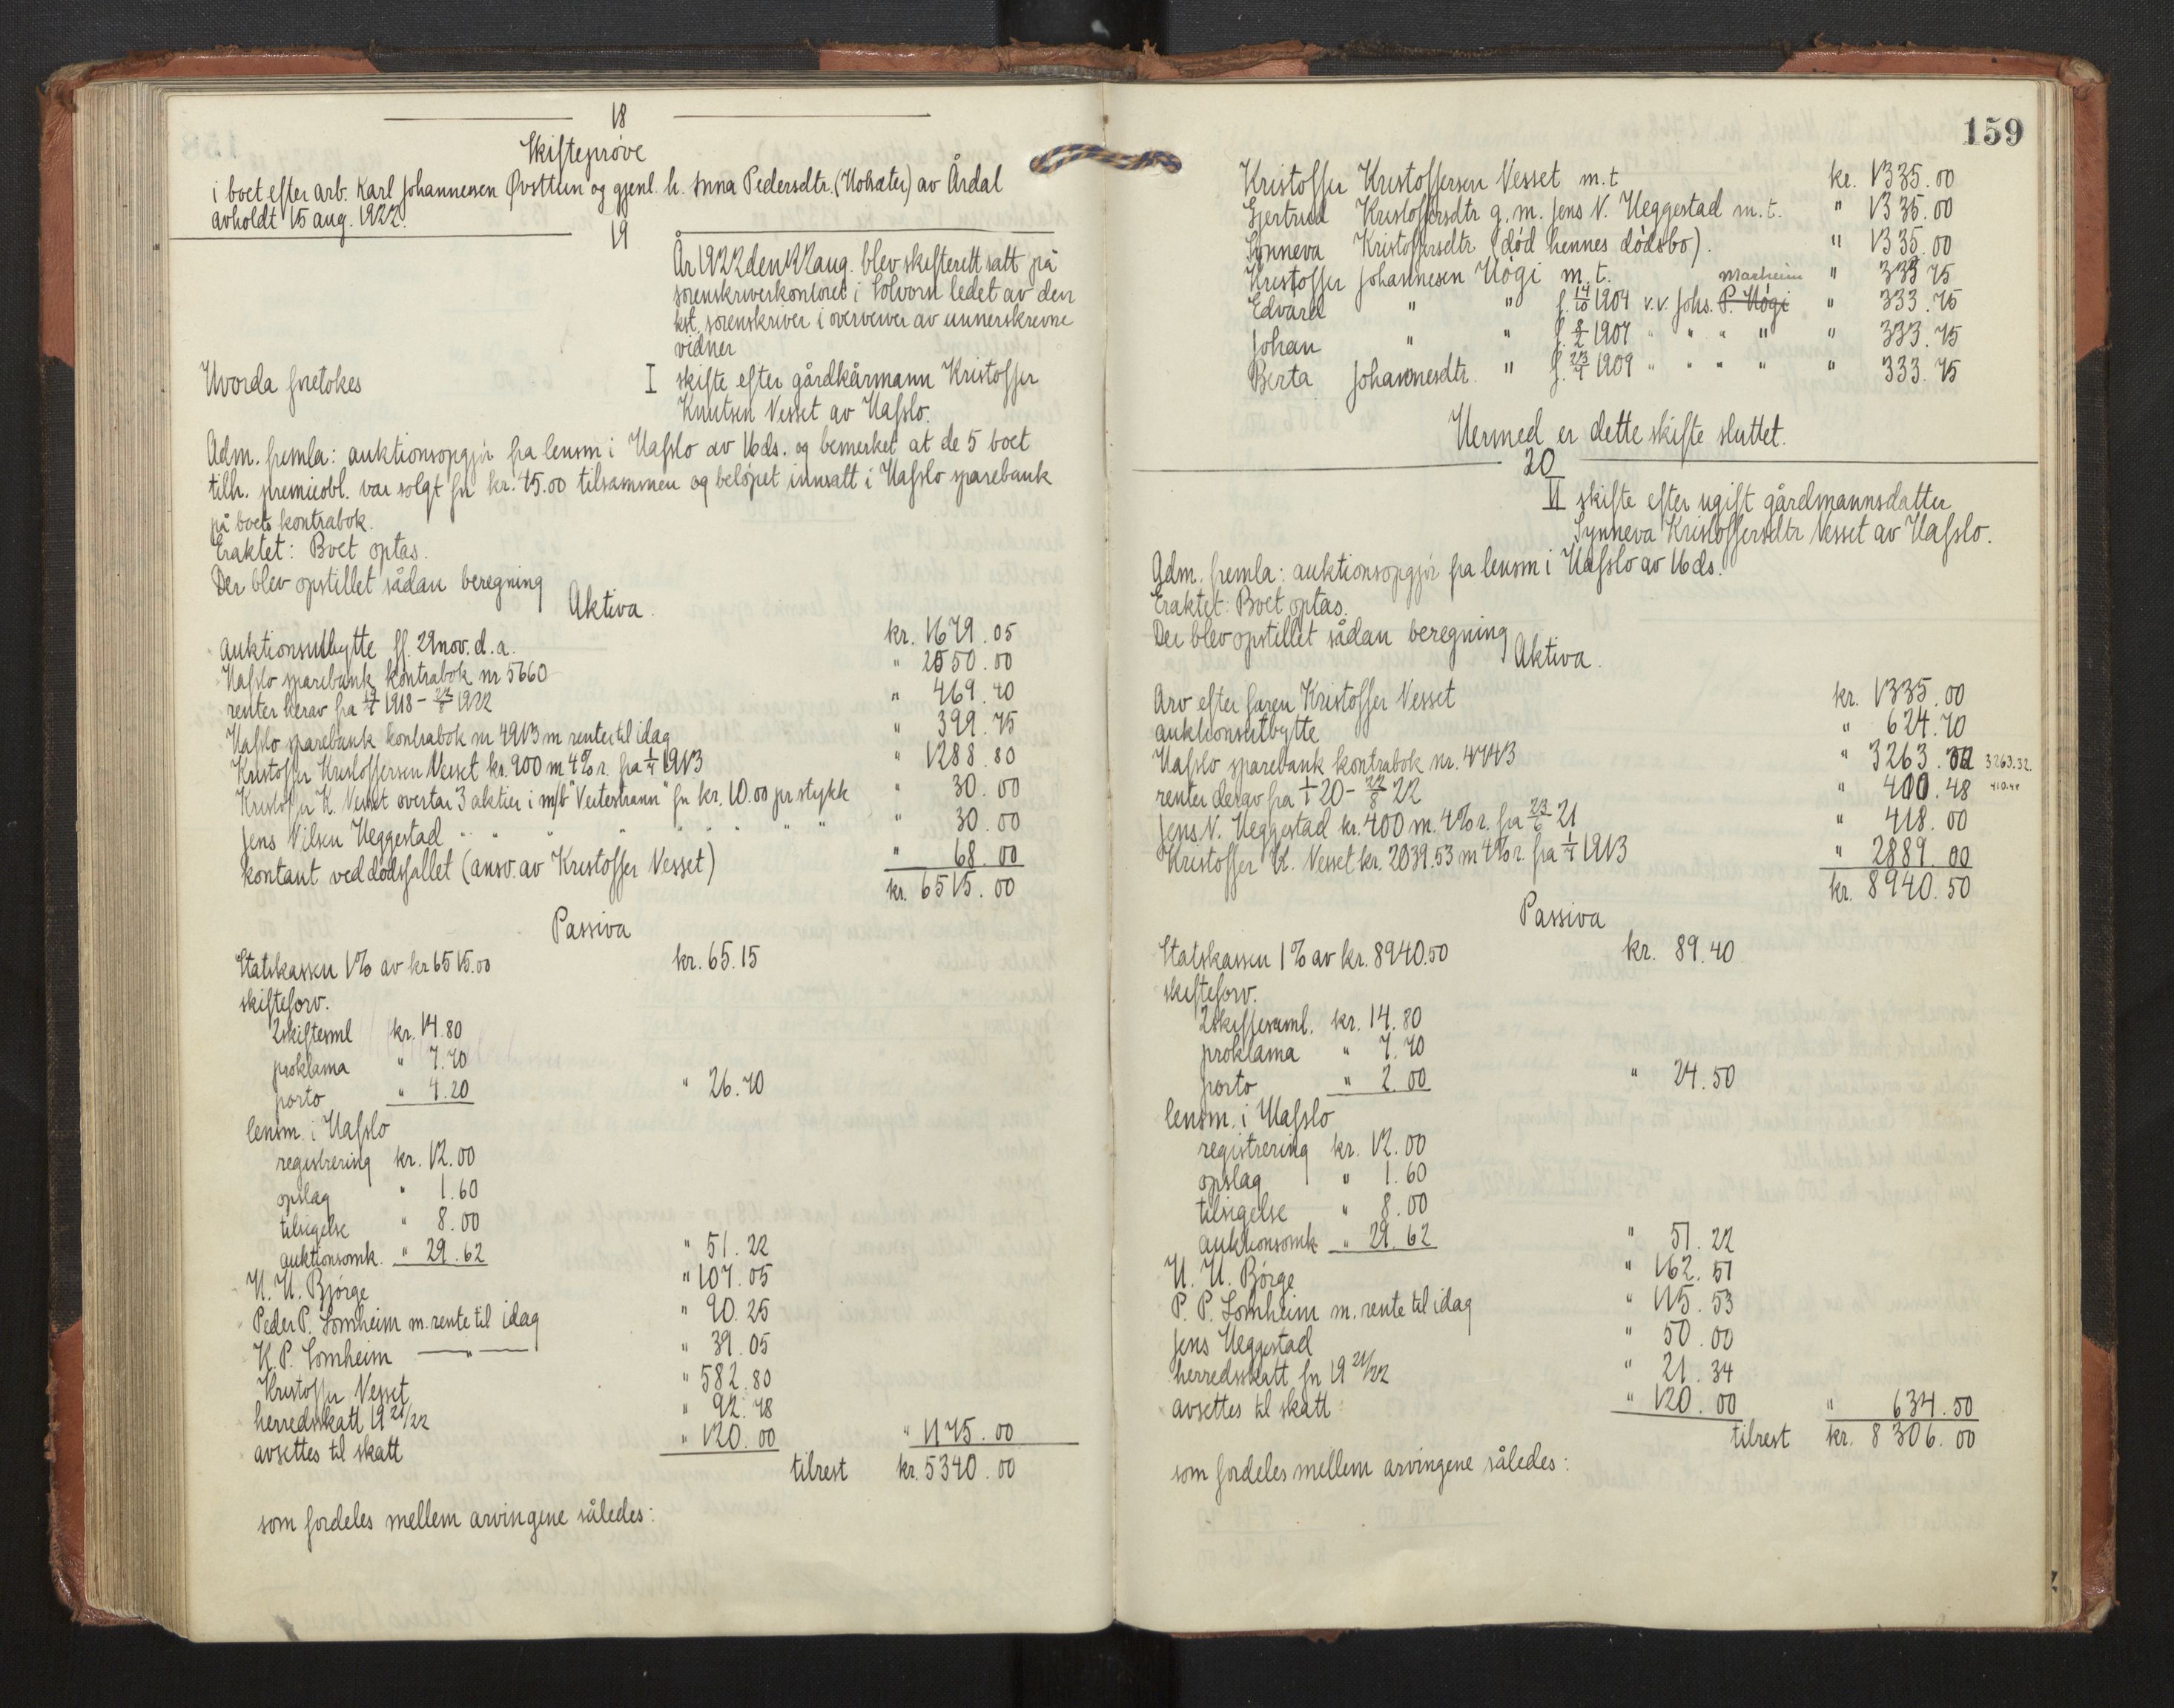 18
Skifteprøve
i boet efter arb. Karl Johannesen Øvsttun og gjenl. h. Anna Pedersdtr. (Holsæter) av Årdal
avholdt 15 aug. 1922.
19
År 1922 den 22 aug. blev skifterett satt på
sorenskriverkontoret i Solvorn ledet av den
kst. sorenskriver i overvær av unnerskrevne
vidner
Hvorda foretokes I skifte efter gårdkårmann Kristoffer
Knutsen Nesset av Hafslo.
Adm. fremla: auktionsopgjør fra lensm i Hafslo av 16 ds. og bemerket at de 5 boet
tilh. premieobl. var solgt for kr. 45.00 tilsammen og beløpet innsatt i Hafslo sparebank
på boets kontrabok.
Eraktet: Boet optas.
Der blev opstillet sådan beregning
Aktiva.
auktionsutbytte ff. 29 nov. d. a. kr. 1679.05
Hafslo sparebank kontrabok nr 5660 " 2550.00
renter herav fra 1918 - 1922 " 469.40
Hafslo sparebank kontrabok nr 4913 m renter til idag " 399.75
Kristoffer Kristoffersen Nesset kr. 900 m 4% r. fra 1/7 1913 " 1288.80
Kristoffer K. Nesset overtar 3 aktier i m/b "Veitestrann" for kr. 10.00 pr stykk " 30.00
Jens Nilsen Heggestad " " " " " " " " " 30.00
kontant ved dødsfallet (ansv. av Kristoffer Nesset) " 68.00
kr. 6515.00
Passiva
Statskassen 1% av kr 6515.00 kr. 65.15
skifteforv.
2 skiftesml kr. 14.80
proklama " 7.70
porto " 4.20 " 26.70
lensm. i Hafslo
registrering kr. 12.00
opslag " 1.60
tilsigelse " 8.00
auktionsomk. " 29.62 " 51.22
H. H. Bjørge " 107.05
Peder P. Lomheim m. rente til idag " 90.25
K. P. Lomheim — " — " 39.05
Kristoffer Nesset " 582.80
herredsskatt 19 21/22 " 92.78
avsettes til skatt " 120.00 " 1175.00
tilrest kr. 5340.00
som fordeles mellem arvingene således:
159
Kristoffer Kristoffersen Nesset m. t. kr. 1335.00
Gjertrud Kristoffersdtr g. m. Jens N. Heggestad m. t. " 1335.00
Synneva Kristoffersdtr (død hennes dødsbo). " 1335.00
Kristoffer Johannesen Høgi m. t. " 333.75
marheim
Edvard " " f. 14/10 1904 v.v. Johs. P. Høgi " 333.75
Johan " " f. 8/2 1907 " " " " " 333.75
Berta Johannesdtr. " f. 1909 " " " " " 333.75
Hermed er dette skifte sluttet.
20
II skifte efter ugift gårdmannsdatter
Synneva Kristoffersdtr Nesset av Hafslo.
Adm. fremla: auktionsopgjør fra lensm i Hafslo av 16 ds.
Eraktet: Boet optas.
Der blev opstillet sådan beregning
Aktiva.
Arv efter faren Kristoffer Nesset kr. 1335.00
auktionsutbytte " 624.70
Hafslo sparebank kontrabok nr. 4743 " 3263.32 3263.32.
renter derav fra 1/1 20 - 22/8 22 " 410.48 410.48
Jens N. Heggestad kr. 400 m. 4% r. fra 23/6 21 " 418.00
Kristoffer K. Nesset kr. 2039.53 m 4% r. fra 1/7 1913 " 2889.00
kr. 8940.50
Passiva
Statskassen 1% av kr. 8940.50 kr. 89.40
skifteforv.
2 skiftesaml. kr. 14.80
proklama " 7.70
porto " 2.00 " 24.50
lensm. i Hafslo
registrering kr. 12.00
opslag " 1.60
tilsigelse " 8.00
auktionsomk " 29.62 " 51.22
H. H. Bjørge " 162.51
P. P. Lomheim m. rente til idag " 115.53
Jens Heggestad " 50.00
herredsskatt for 19 21/22 " 21.34
avsettes til skatt " 120.00 " 634.50
tilrest kr. 8306.00
som fordeles mellem arvingene således: